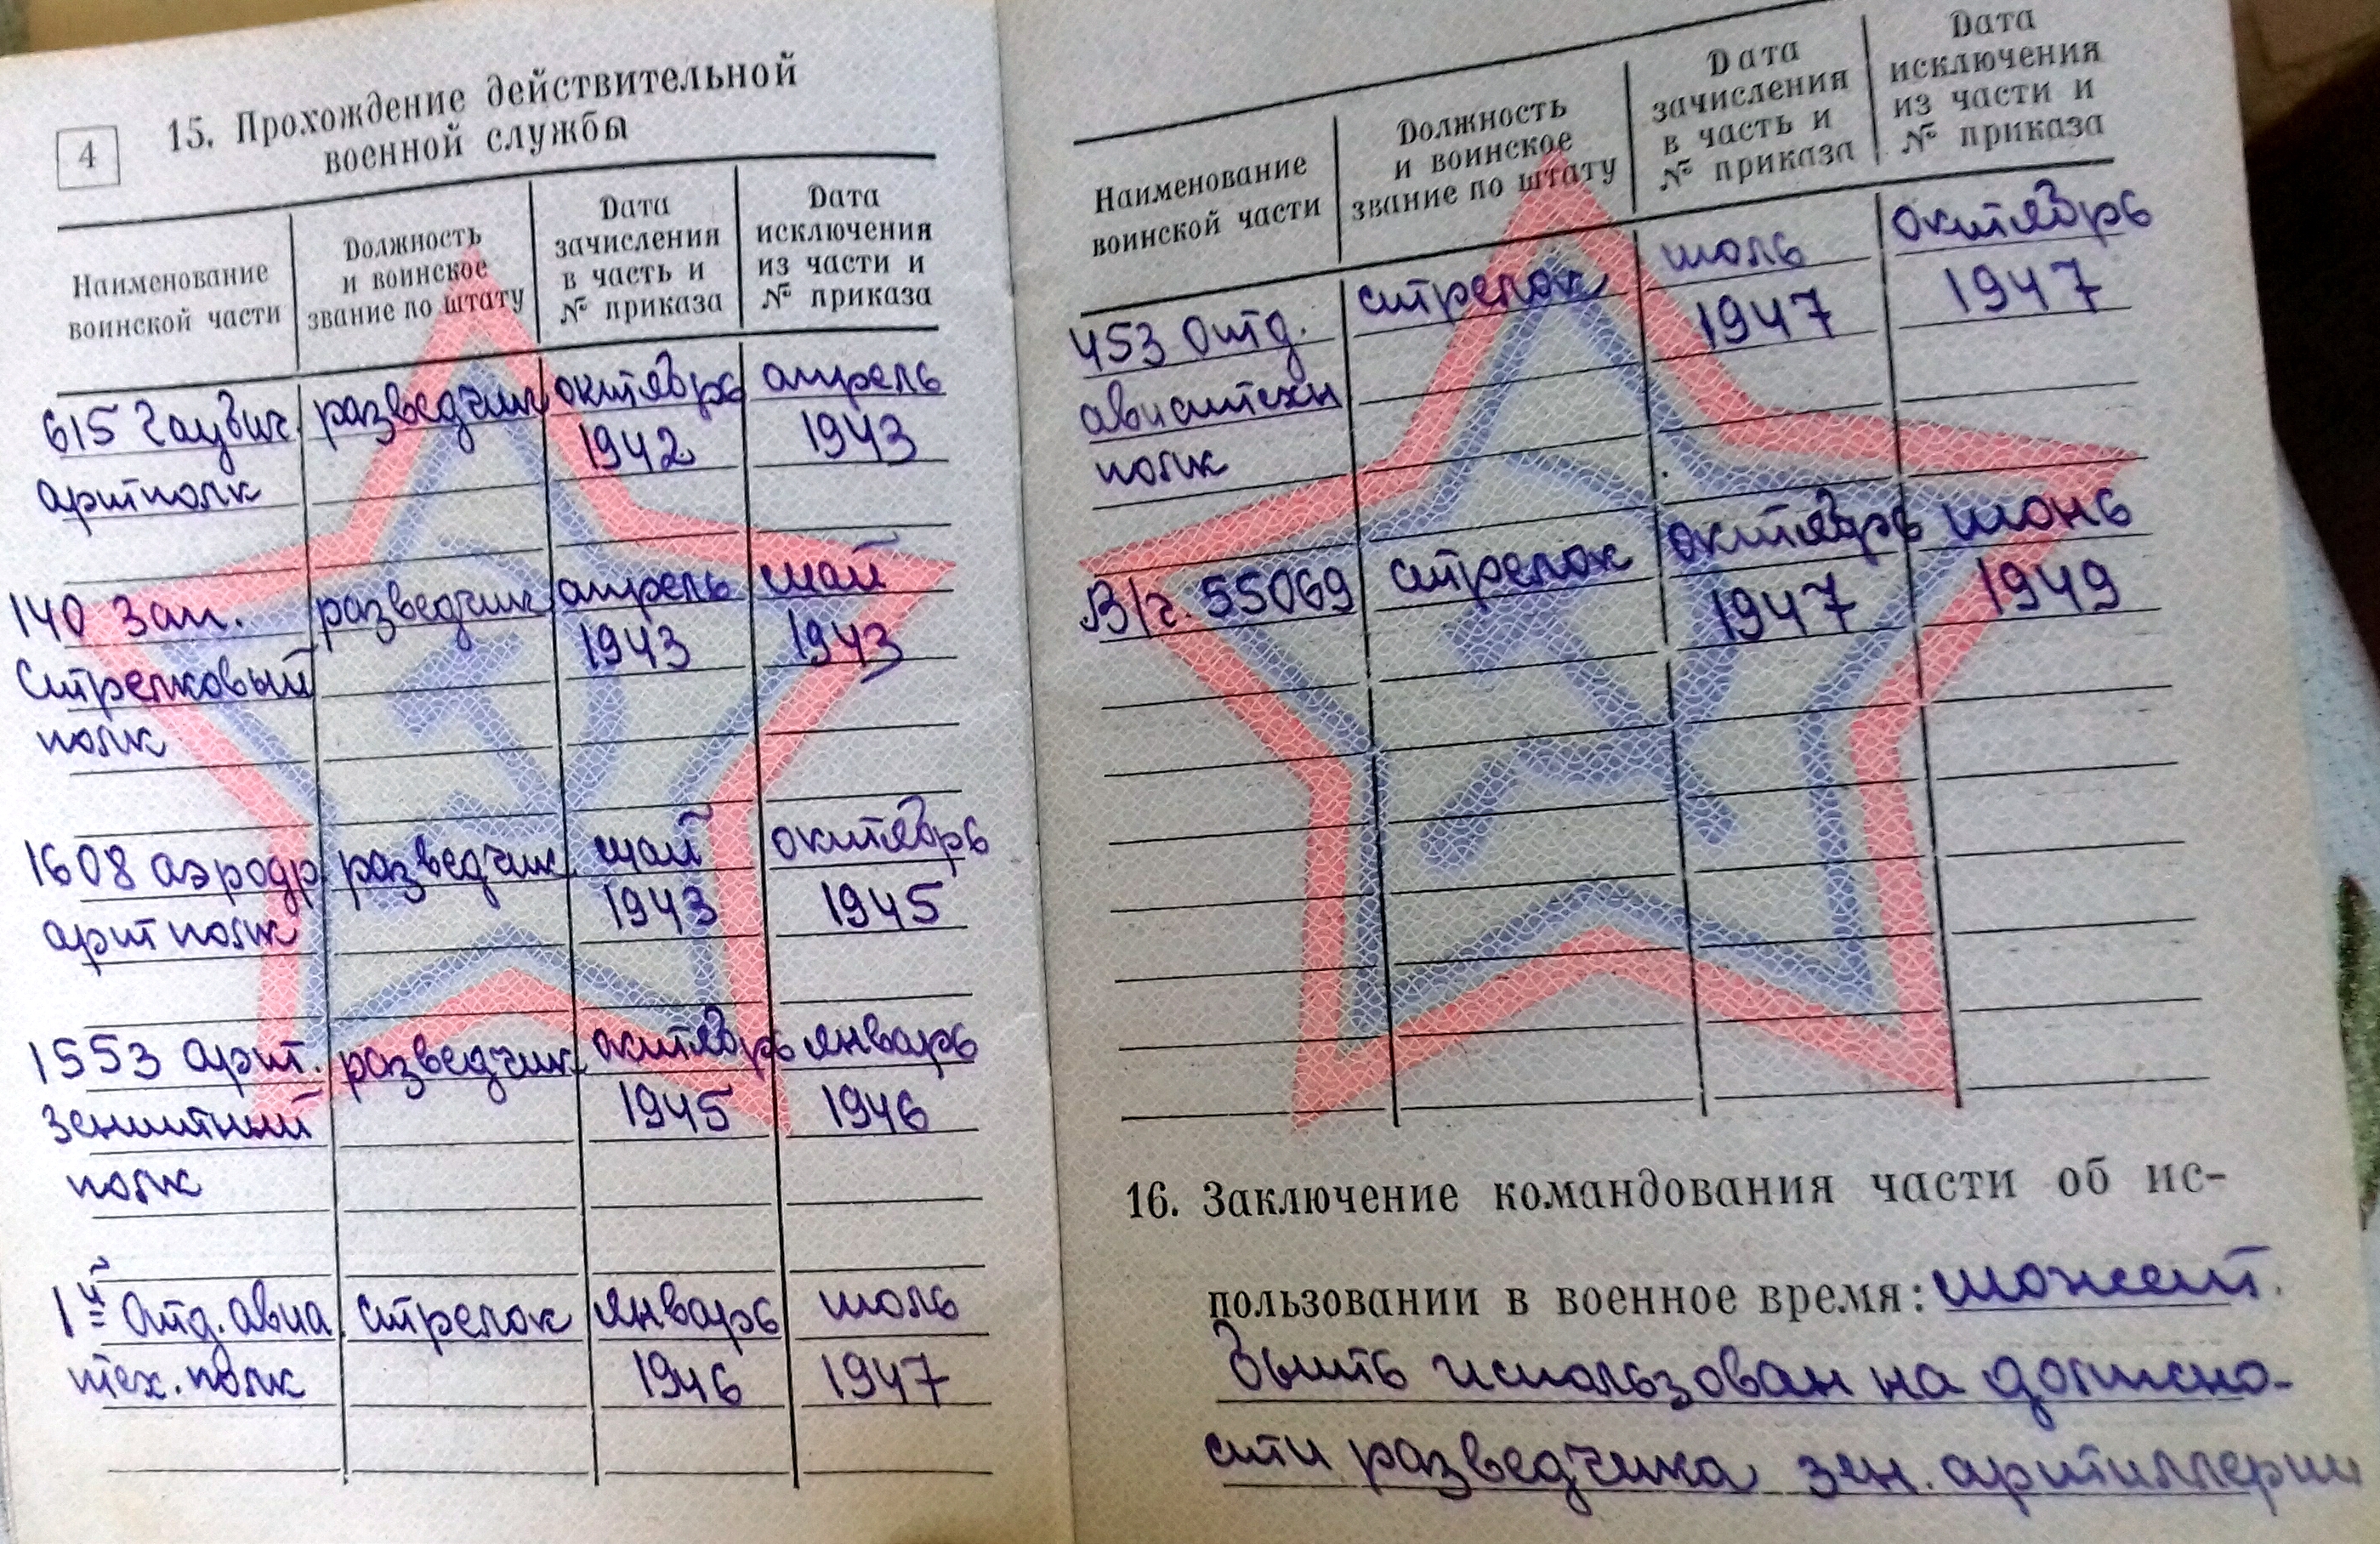 4
15. Прохождение действительной
военной службы
Наименование
воинской части
Должность
и воинское
звание по штату
Дата
зачисления
в часть и
№ приказа
Дата
исключения
из части и
№ приказа
615 Гаубич. разведчик октябрь апрель
артполк 1942 1943
140 Зап. разведчик апрель май
Стрелковый 1943 1943
полк
1608 аэродр. разведчик май октябрь
арт полк 1943 1945
1553 арт. разведчик октябрь январь
зенитный 1945 1946
полк
1й Отд. авиа стрелок январь июль
тех. полк 1946 1947
Наименование
воинской части
Должность
и воинское
звание по штату
Дата
зачисления
в часть и
№ приказа
Дата
исключения
из части и
№ приказа
453 отд. стрелок июль октябрь
авиатехн 1947 1947
полк
В/ч. 55069 стрелок октябрь июнь
1947 1949
16. Заключение командования части об ис-
пользовании в военное время: может
быть использован на должно-
сти разведчика зен. артиллерии